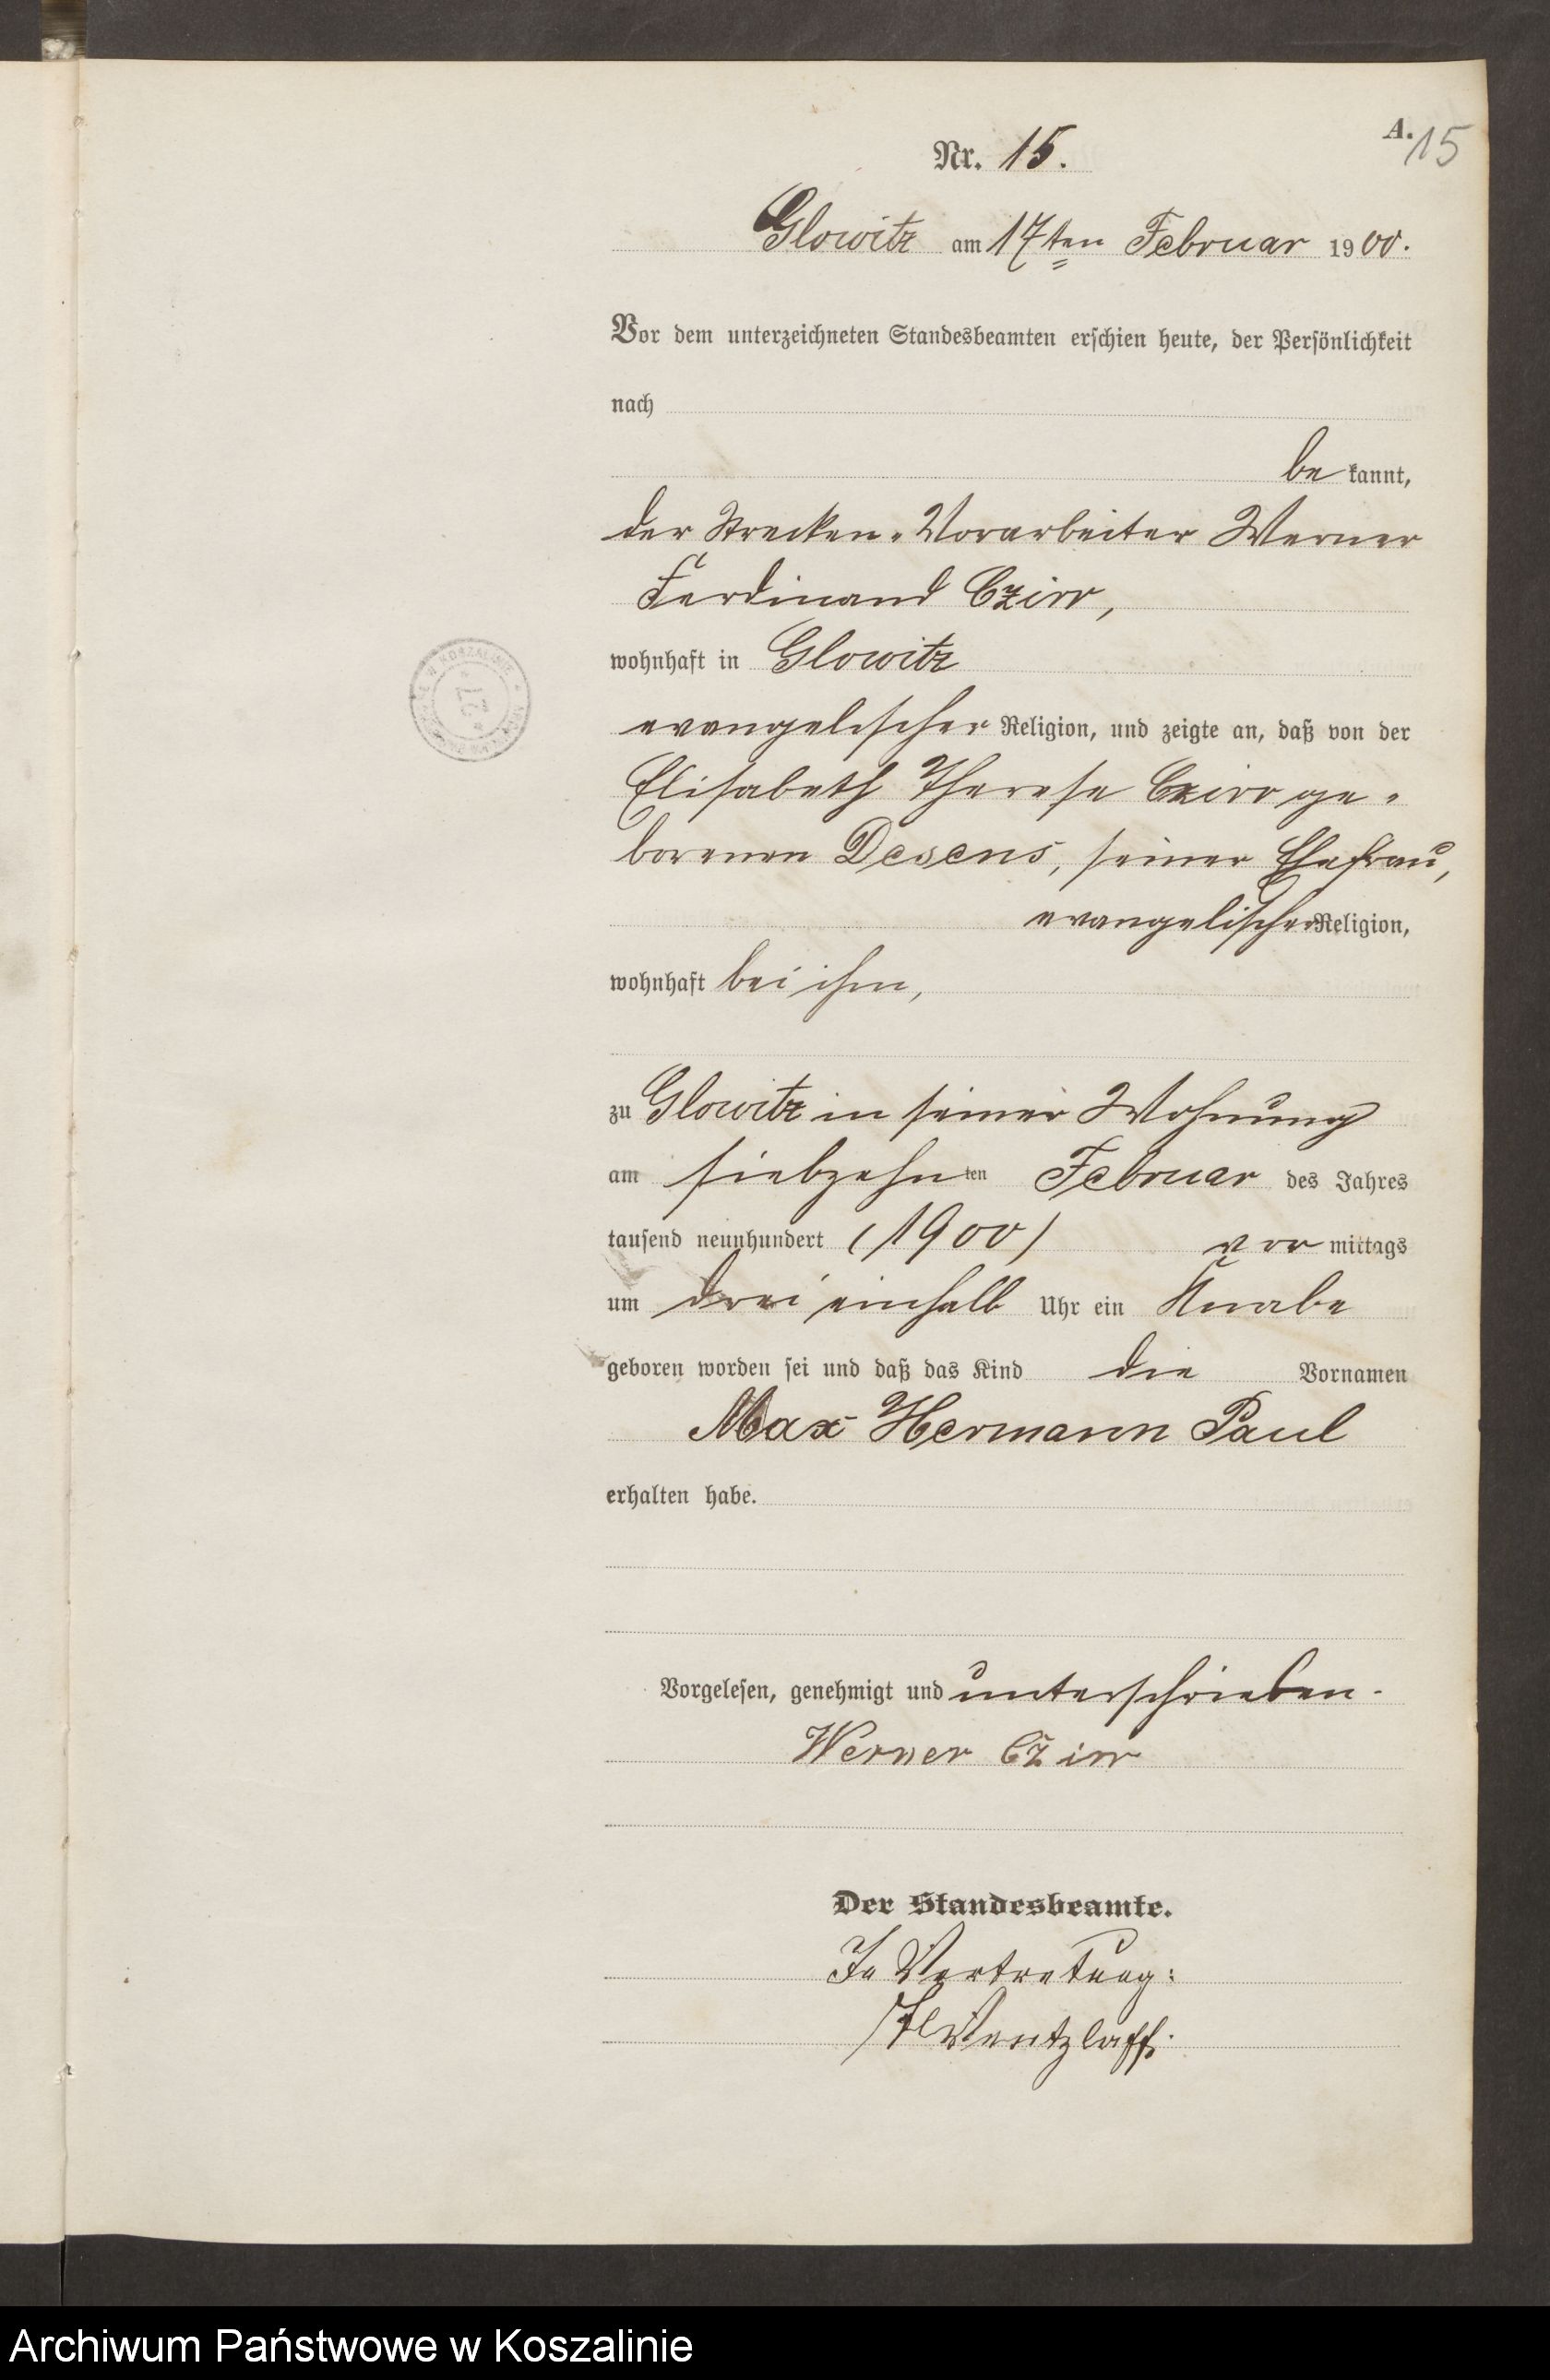 A.
15
Nr. 15.
Glowitz am 17ten Februar 1900.
Vor dem unterzeichneten Standesbeamten erschien heute, der Persönlichkeit
nach
be kannt,
der Strecken-Vorarbeiter Werner
Ferdinand Czirr,
wohnhaft in Glowitz
evangelischer Religion, und zeigte an, daß von der
Elisabeth Therese Czirr ge-
borenen Desens, seiner Ehefrau,
evangelischer Religion,
wohnhaft bei ihm,
zu Glowitz in seiner Wohnung
am siebzehn ten Februar des Jahres
tausend neunhundert (1900) vor mittags
um drei einhalb Uhr ein Knabe
geboren worden sei und daß das Kind die Vornamen
Max Hermann Paul
erhalten habe.
Vorgelesen, genehmigt und unterschrieben.
Werner Czirr
Der Standesbeamte.
In Vertretung:
Wentzlaff.
W KOSZALINIE
Archiwum Państwowe w Koszalinie